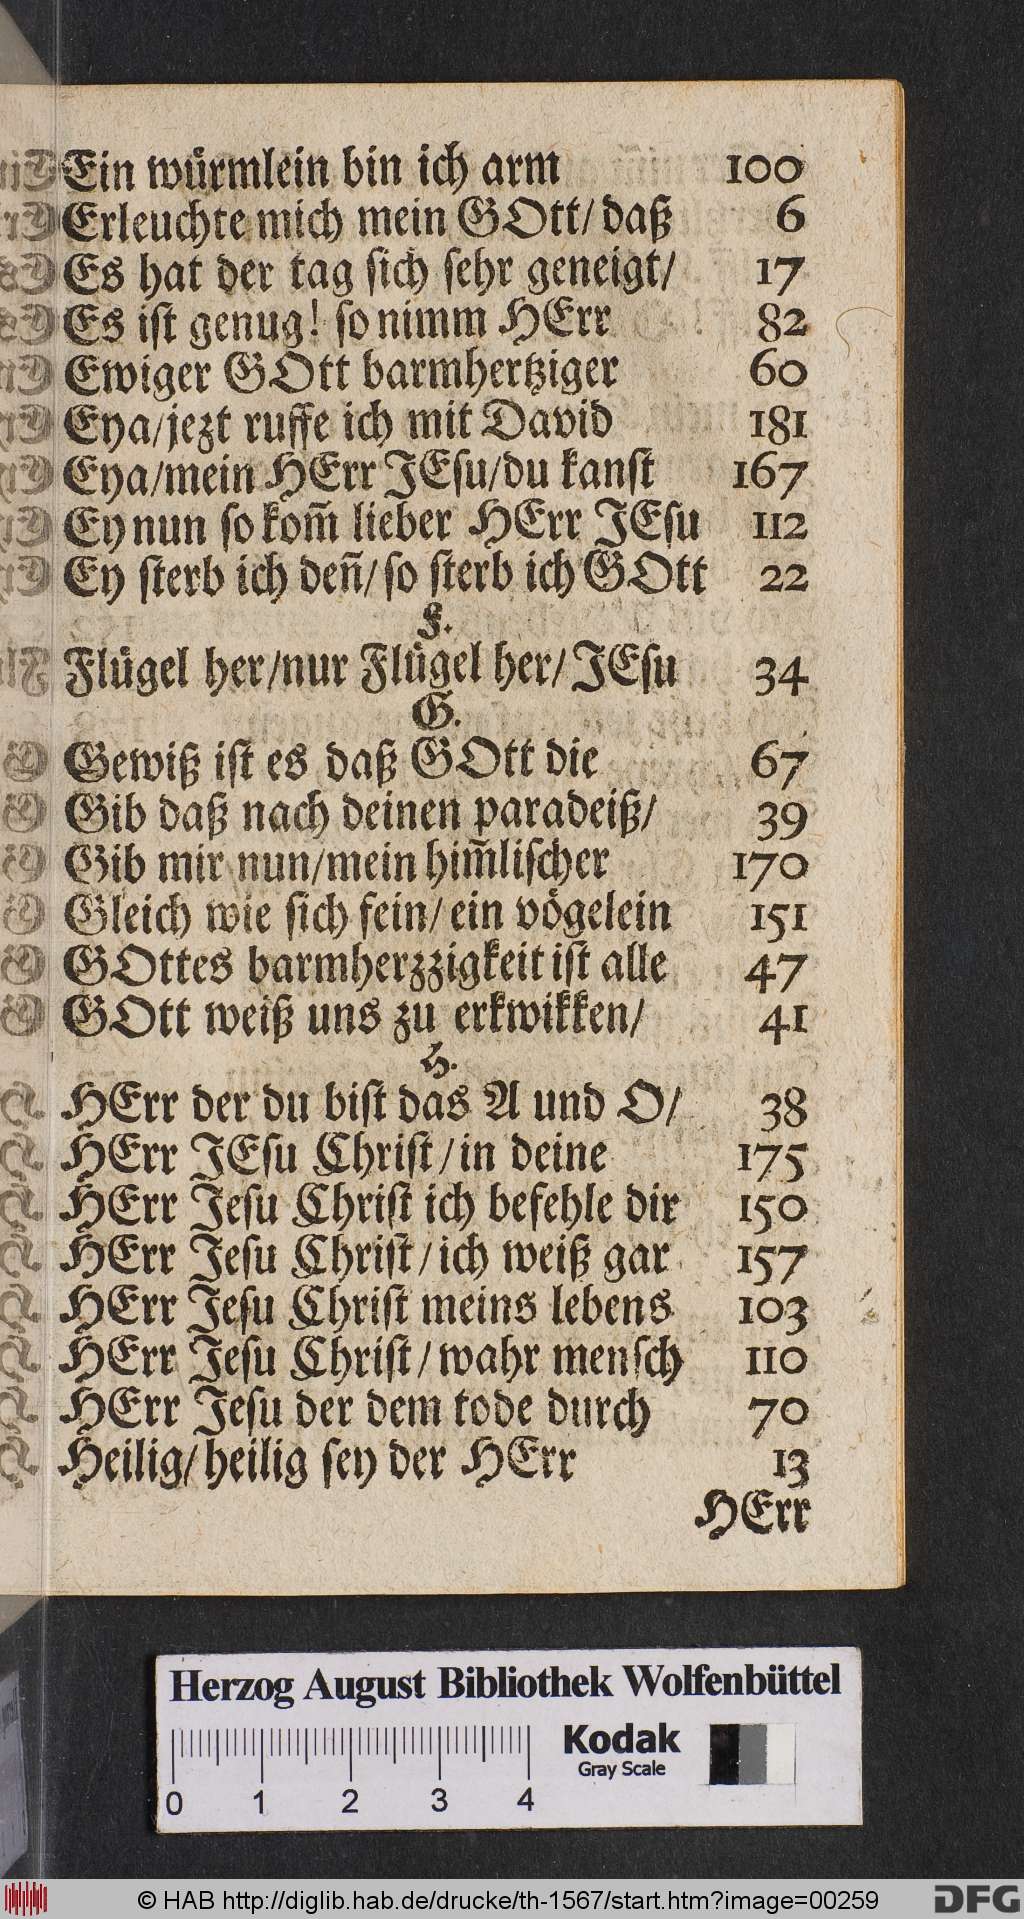 Ein würmlein bin ich arm 100
Erleuchte mich mein GOtt/ daß 6
Es hat der tag sich sehr geneigt/ 17
Es ist genug! so nimm HErr 82
Ewiger GOtt barmhertziger 60
Eya/jezt ruffe ich mit David 181
Eya/mein HErr JEsu/du kanst 167
Ey nun so kom̃ lieber HErr JEsu 112
Ey sterb ich den̄/ so sterb ich GOtt 22
F.
Flügel her/nur Flügel her/ JEsu 34
G.
Gewiß ist es daß GOtt die 67
Gib daß nach deinen paradeiß/ 39
Gib mir nun/mein him̃lischer 170
Gleich wie sich fein/ ein vögelein 151
GOttes barmherzzigkeit ist alle 47
GOtt weiß uns zu erkwikken/ 41
H.
HErr der du bist das A und O/ 38
HErr JEsu Christ/in deine 175
HErr Jesu Christ ich befehle dir 150
HErr Jesu Christ/ich weiß gar 157
HErr Jesu Christ meins lebens 103
HErr Jesu Christ/wahr mensch 110
HErr Jesu der dem tode durch 70
Heilig/heilig sey der HErr 13
HErr
Herzog August Bibliothek Wolfenbüttel
Kodak
Gray Scale
0 1 2 3 4
© HAB http://diglib.hab.de/drucke/th-1567/start.htm?image=00259
DFG